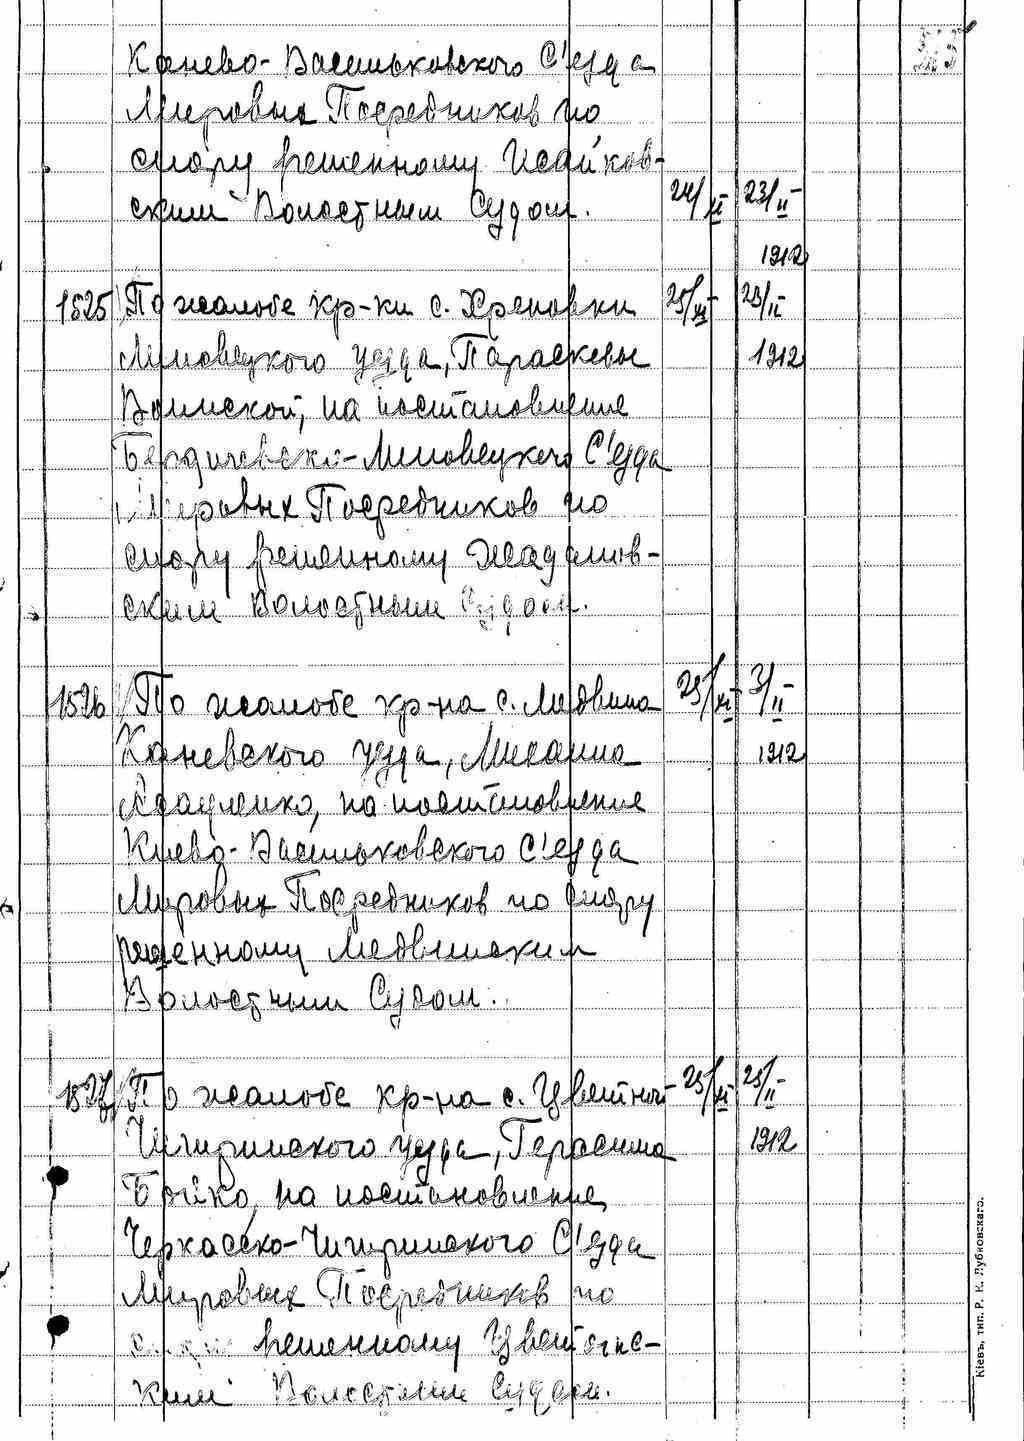 Канево-Васильковского С'езда
Мировых Посредников по
спору решенному Исайков-
ским Волостным Судом. 24/XI 23/II
1912
1525 По жалобе кр-ки с. Хреновки 25/XI 23/II
Липовецкого уезда, Параскевы 1912
Волинской, на постановление
Бердичевско-Липовецкого С'езда
Мировых Посредников по
спору решенному Жаданов-
ским Волостным Судом.
1526 По жалобе кр-на с. Медвина 25/XI 3/II
Каневского уезда, Михаила 1912
на постановление
Киево-Васильковского С'езда
Мировых Посредников по спору
решенному Медвинским
Волостным Судом.
1527 По жалобе кр-на с. Цветной 25/XI 25/II
Чигиринского уезда, Герасима 1912
Бойко, на постановление
Черкасско-Чигиринского С'езда
Мировых Посредников по
спору решенному Цветенс-
ким Волостным Судом.
Кіевъ, тип. Р. К. Лубковскаго.